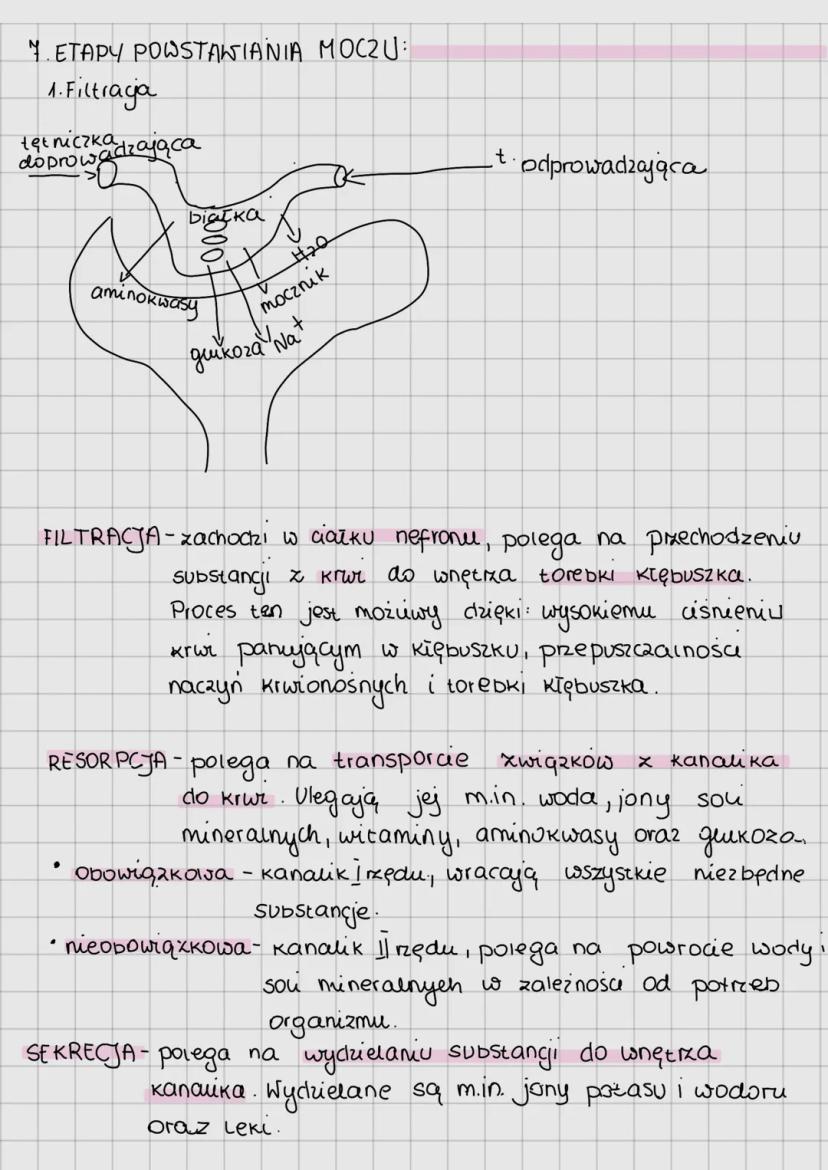 7. ETAPY POWSTAWIANIA MOCZU:
1. Filtracja
tętniczka
doprowadzająca
t. odprowadzająca
białka
H2O
aminokwasy
mocznik
glukoza
Na+
FILTRACJA - zachodzi w ciałku nefronu, polega na przechodzeniu
substancji z krwi do wnętrza torebki kłębuszka.
Proces ten jest możliwy dzięki: wysokiemu ciśnieniu
krwi panującym w kłębuszku, przepuszczalności
naczyń krwionośnych i torebki kłębuszka.
RESORPCJA - polega na transporcie związków z kanalika
do krwi. Ulegają jej m.in. woda, jony soli
mineralnych, witaminy, aminokwasy oraz glukoza.
• obowiązkowa - kanalik I rzędu, wracają wszystkie niezbędne
substancje.
• nieobowiązkowa - kanalik II rzędu, polega na powrocie wody i
soli mineralnych w zależności od potrzeb
organizmu.
SEKRECJA - polega na wydzielaniu substancji do wnętrza
kanalika. Wydzielane są m.in. jony potasu i wodoru
oraz leki.